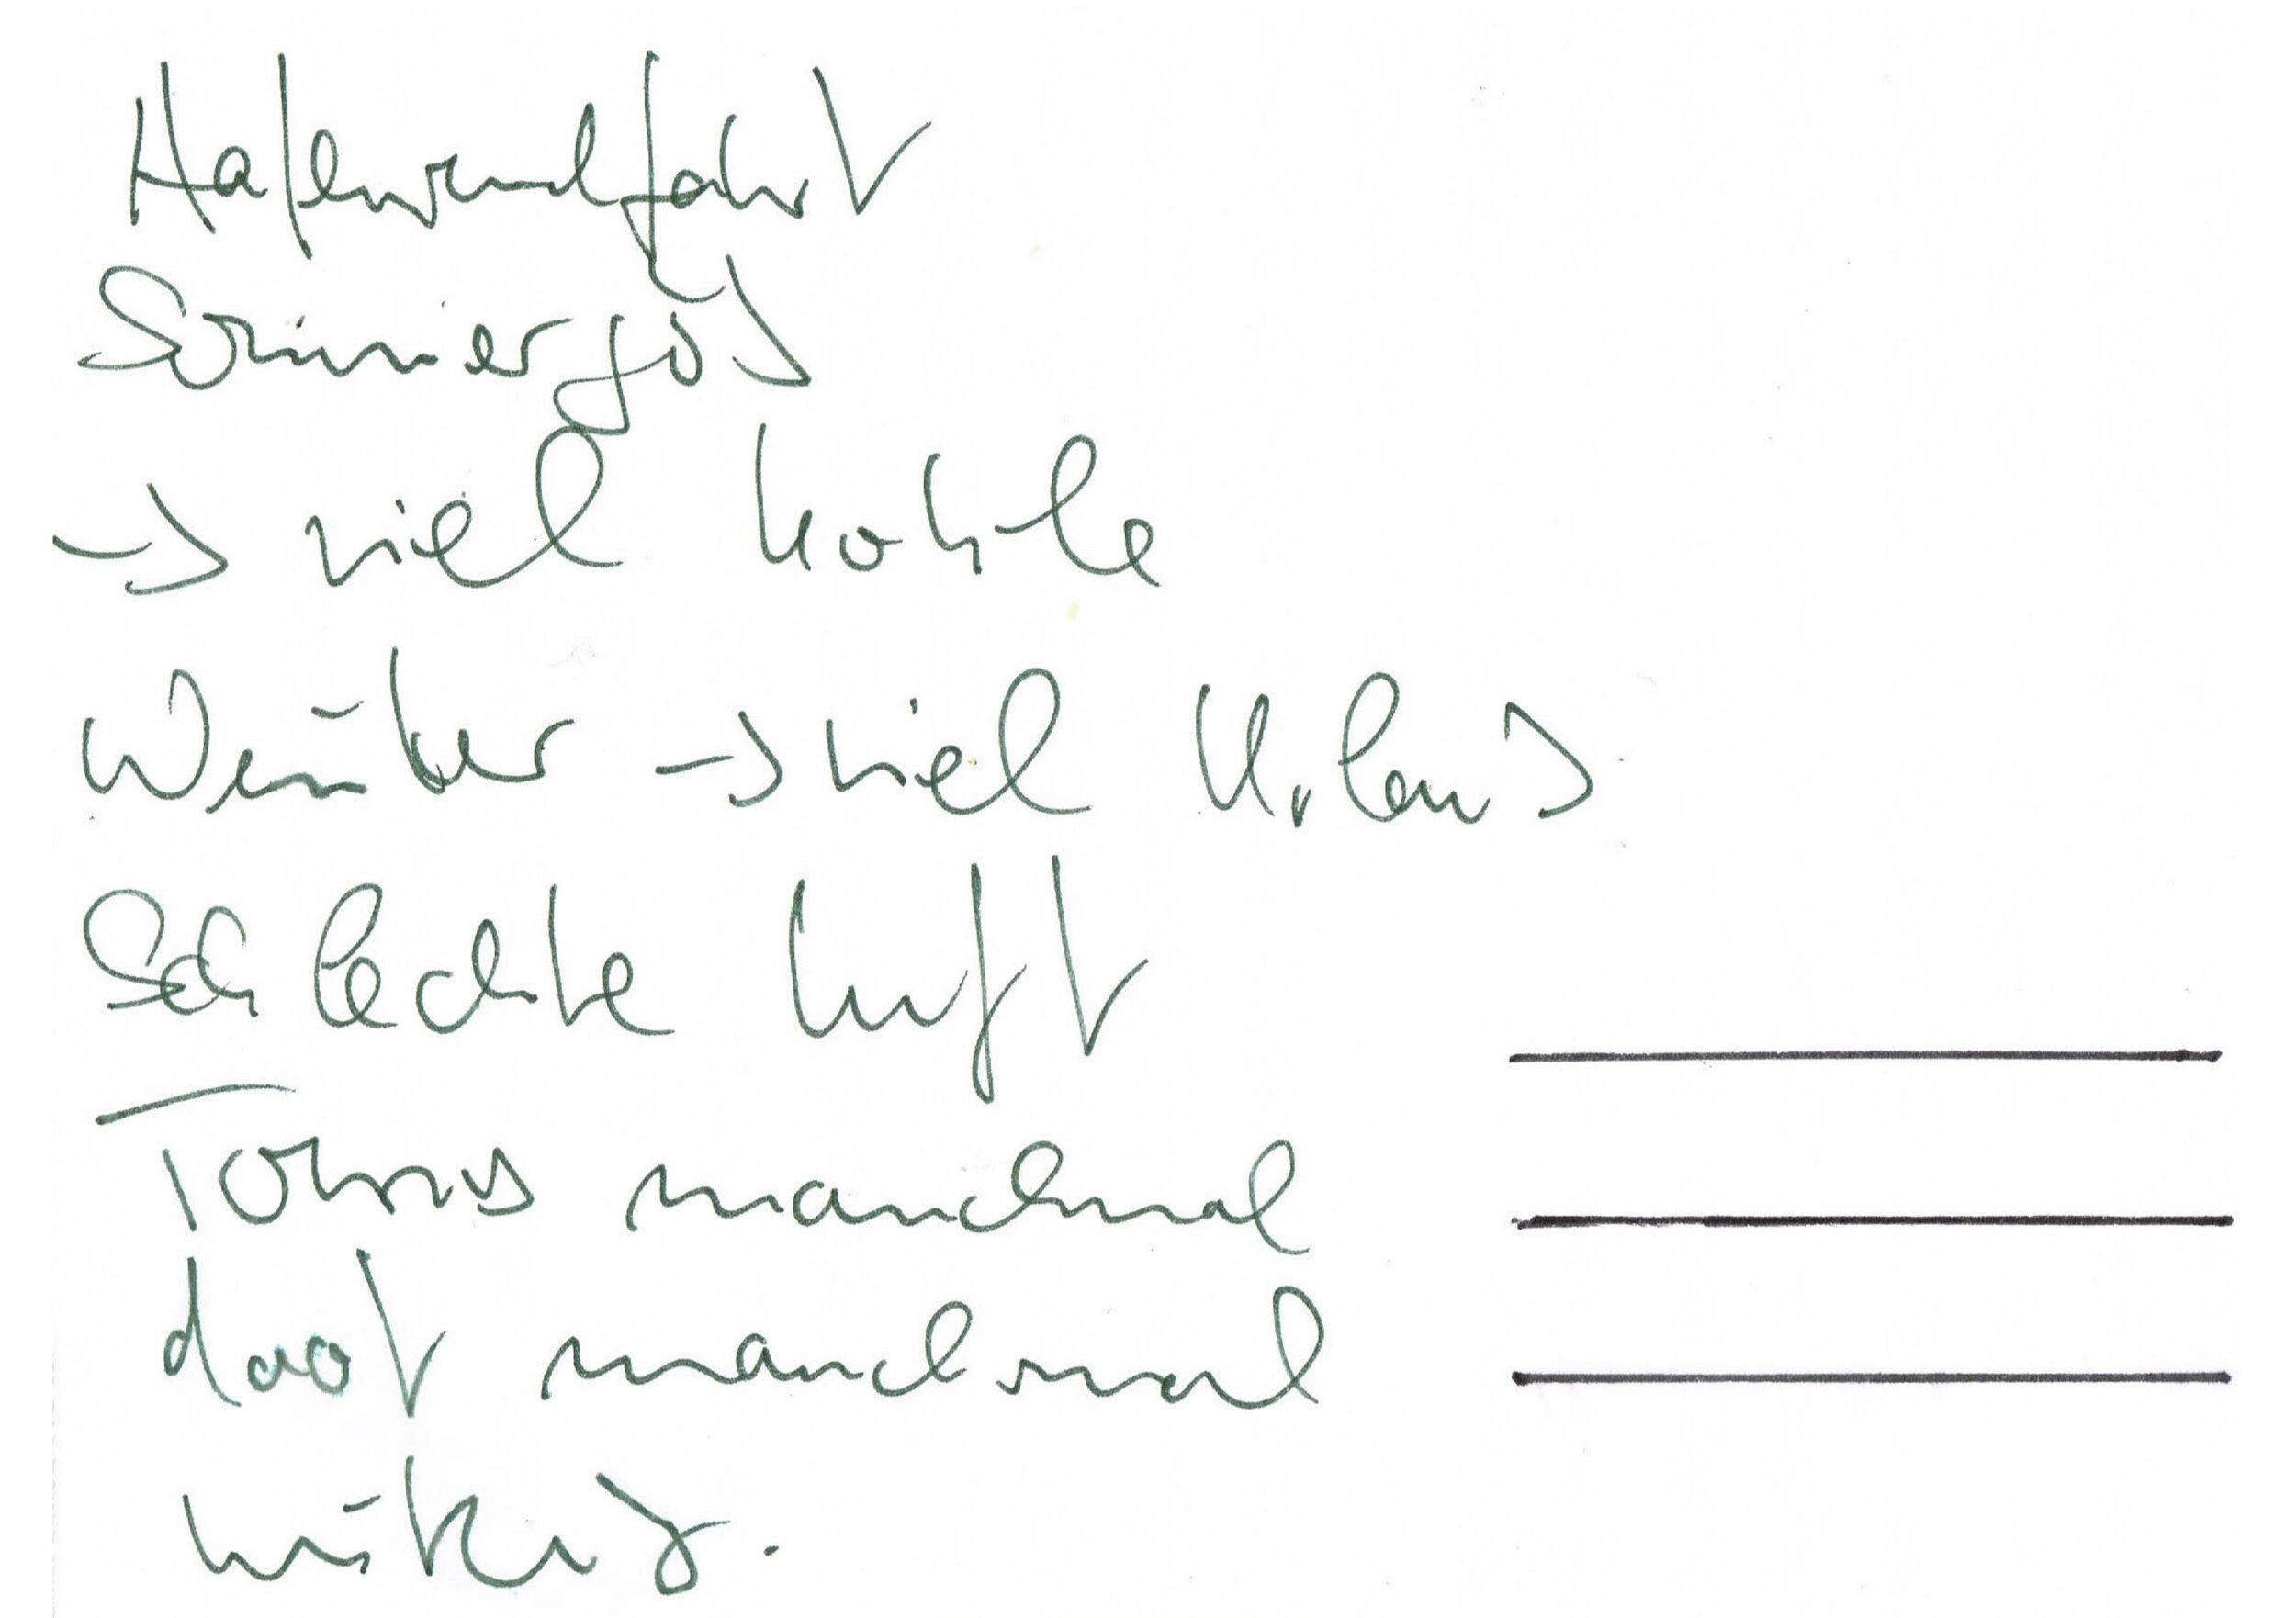 Hafenrundfahrt
Sommerjob
→ viel Kohle
Winter → viel Urlaub
Schlechte Luft
Touris manchmal
doof manchmal
witzig.